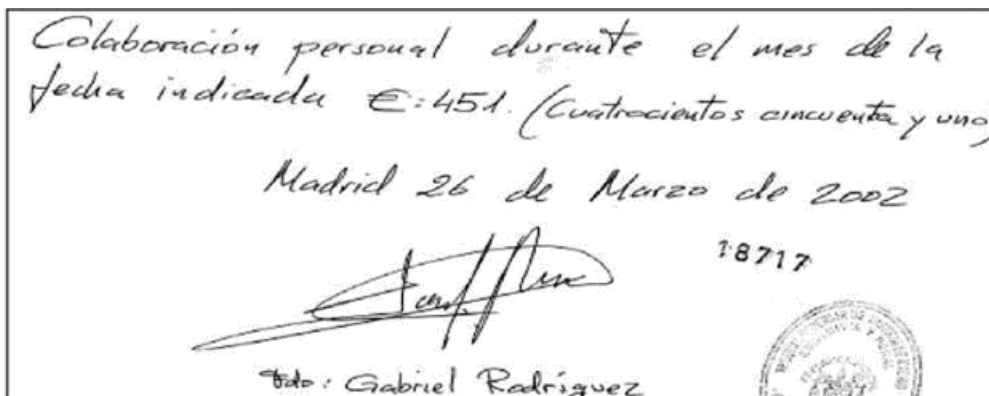 Colaboración personal durante el mes de la
fecha indicada €:451. (Cuatrocientos cincuenta y uno)
Madrid 26 de Marzo de 2002
18717
Fdo: Gabriel Rodríguez